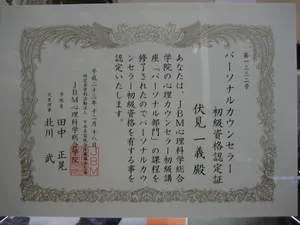 第一二三二号
パーソナルカウンセラー
初級資格認定証
伏見 一義 殿
あなたは、JBM心理科学総合
学院の心理カウンセラー初級講
座「パーソナル部門」の課程を
修了されたのでパーソナルカウ
ンセラー初級資格を有する事を
認定いたします。
平成二十三年十二月十八日
JBM心理科学総合学院
学院長 田中 正晃
北川 武